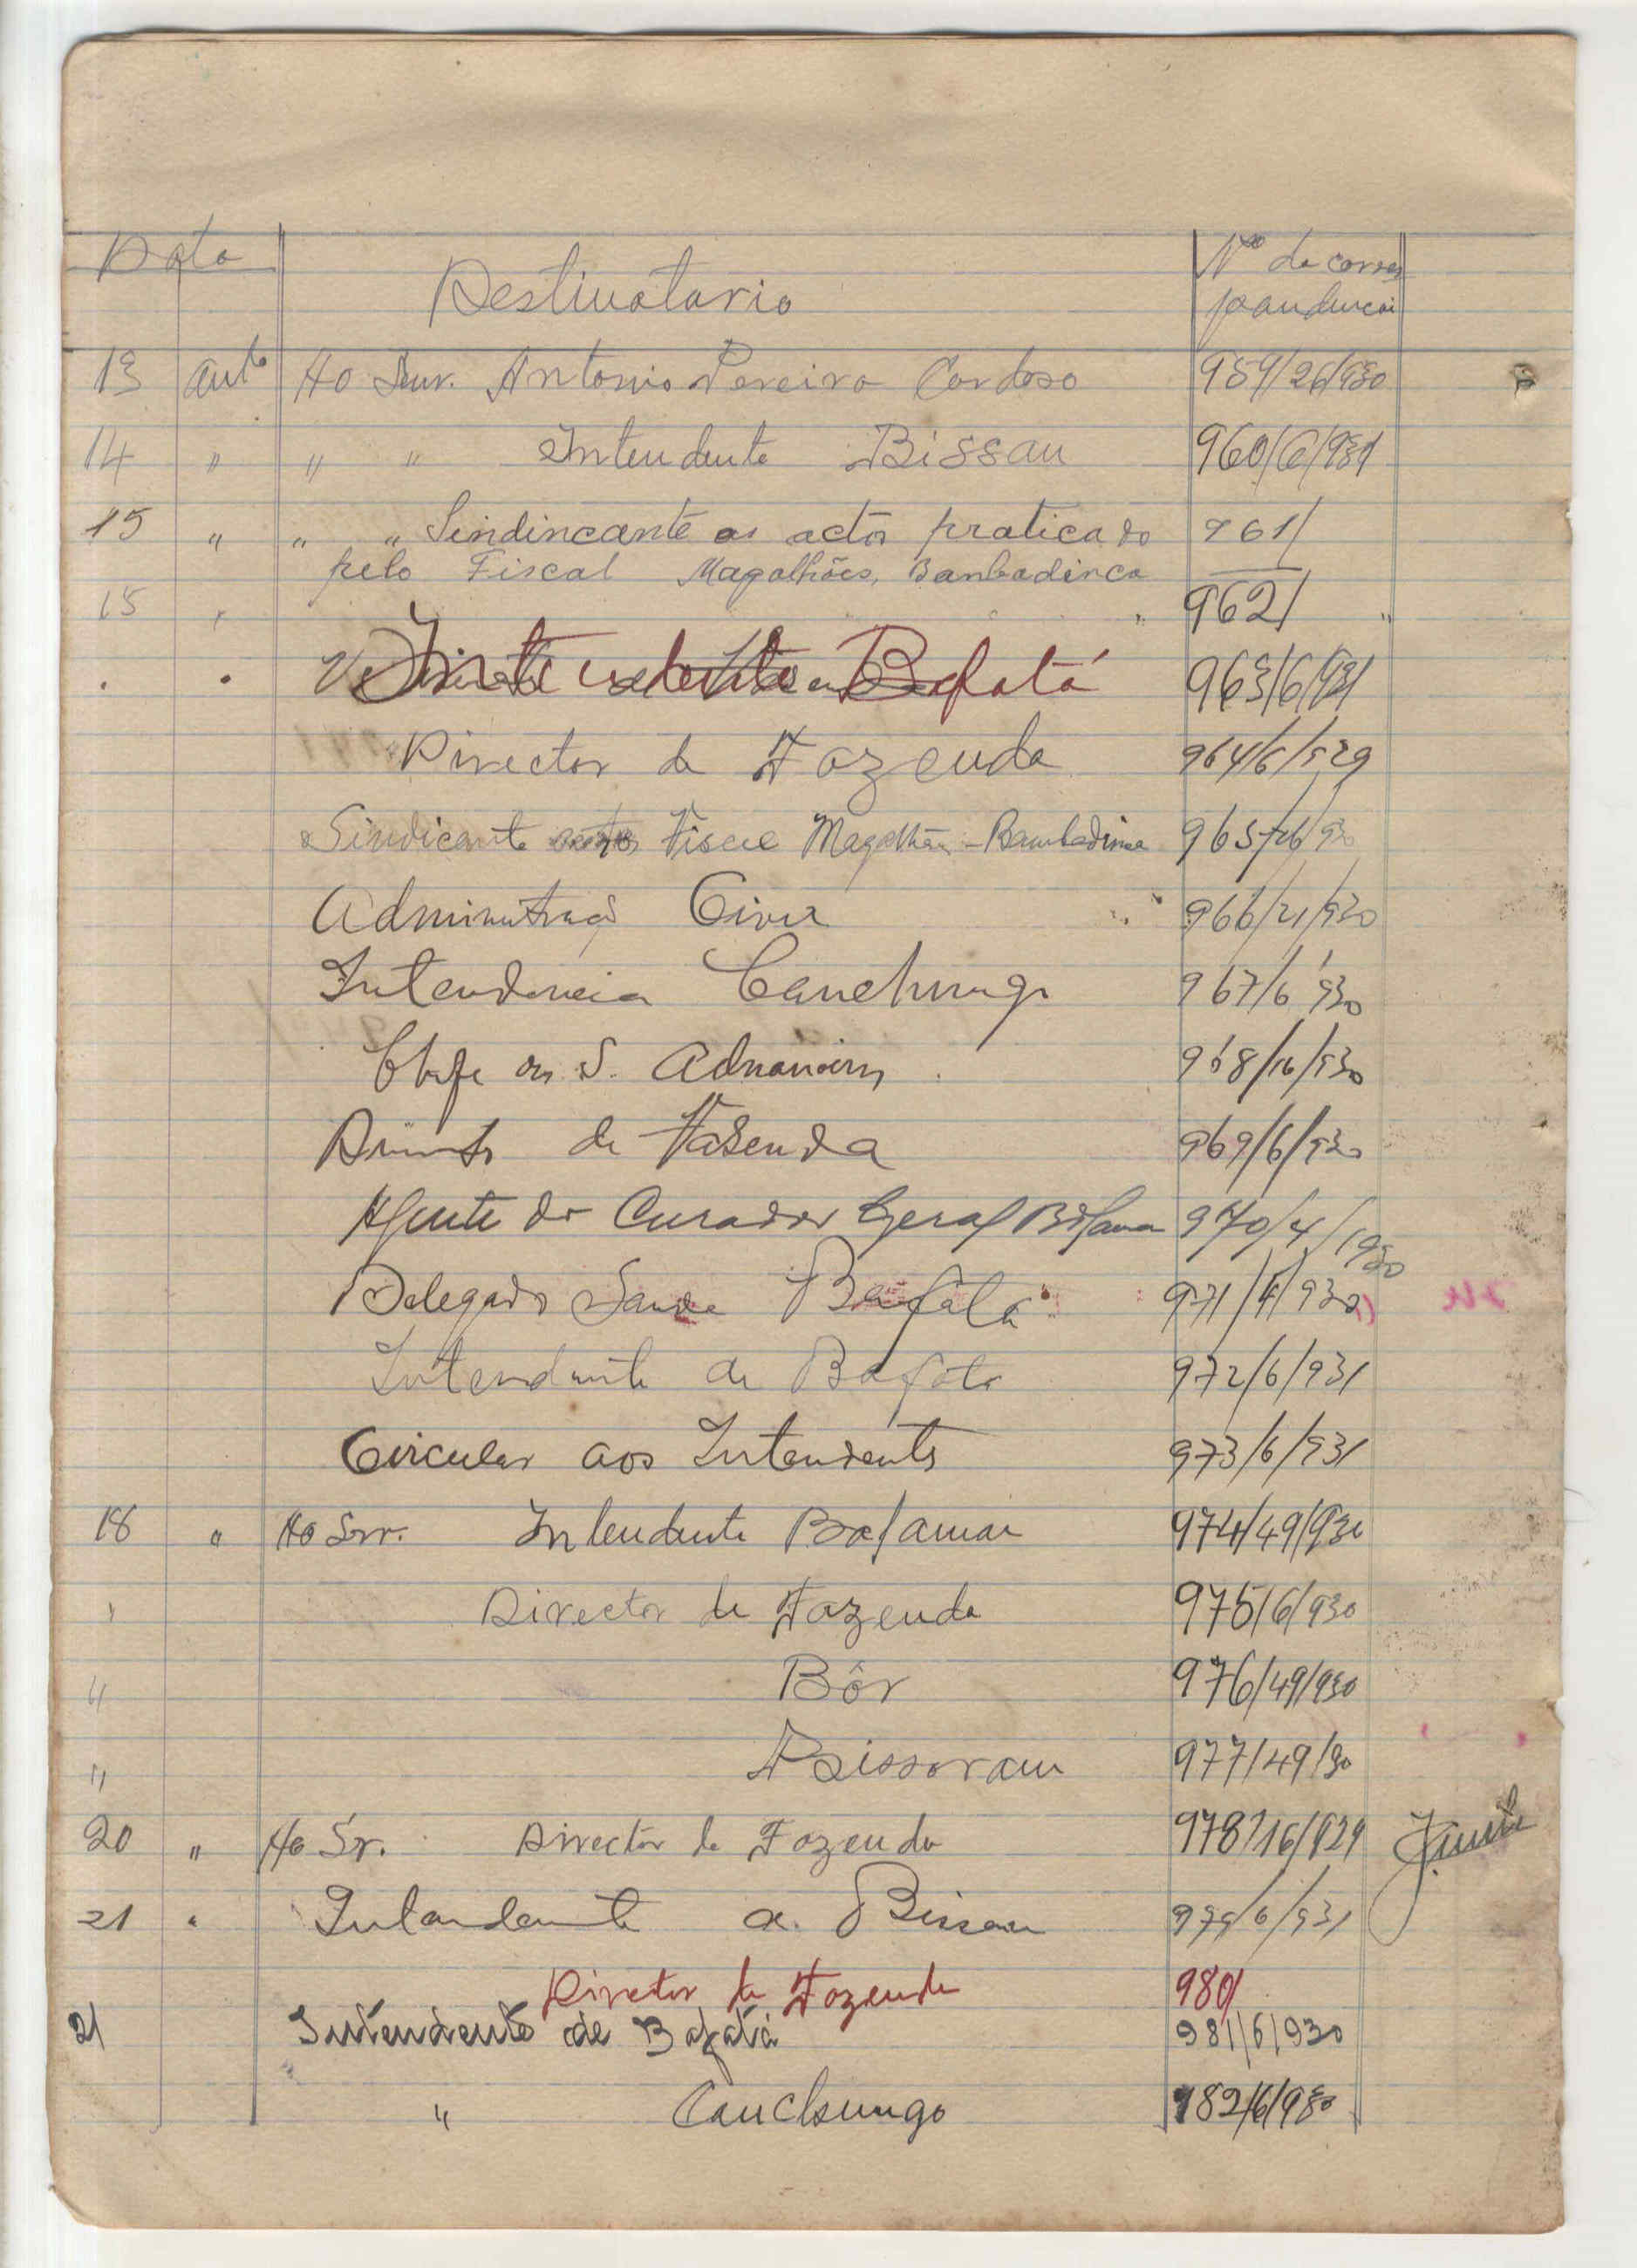 Data
Destinatario
Nº da corres
pondencia
13 Ao Snr. Antonio Pereira Cardoso 959/26/930
14 " " " Intendente Bissau 960/6/931
15 " " " Sindincante os actos praticado 961/
pelo Fiscal Magalhães, Banbadinca
15 " " 962/ "
" " Bafatá 963/6/931
Director de Fazenda 964/6/929
Sindicante Fiscal Magalhães - Bambadinca 965/26/930
Administração Civil 966/21/930
Intendencia Canchungo 967/6/930
Chefe dos S. Aduaneiros 968/16/930
Director de Fasenda 969/6/930
Agente do Curador Geral Bolama 970/4/1930
Delegado Saude Bafatá 971/4/930
Intendente de Bafata 972/6/931
Circular aos Intendents 973/6/931
18 " Ao Snr. Intendente 974/49/930
" Director de Fazenda 975/6/930
" Bôr 976/49/930
" Bissoram 977/49/30
20 " Ao Sr. Director de Fazenda 978/16/929
21 " Intendente de Bissau 979/6/931
Diretor de Fazenda 980/
21 Intendente de Bafatá 981/6/930
" Canchungo 982/6/930